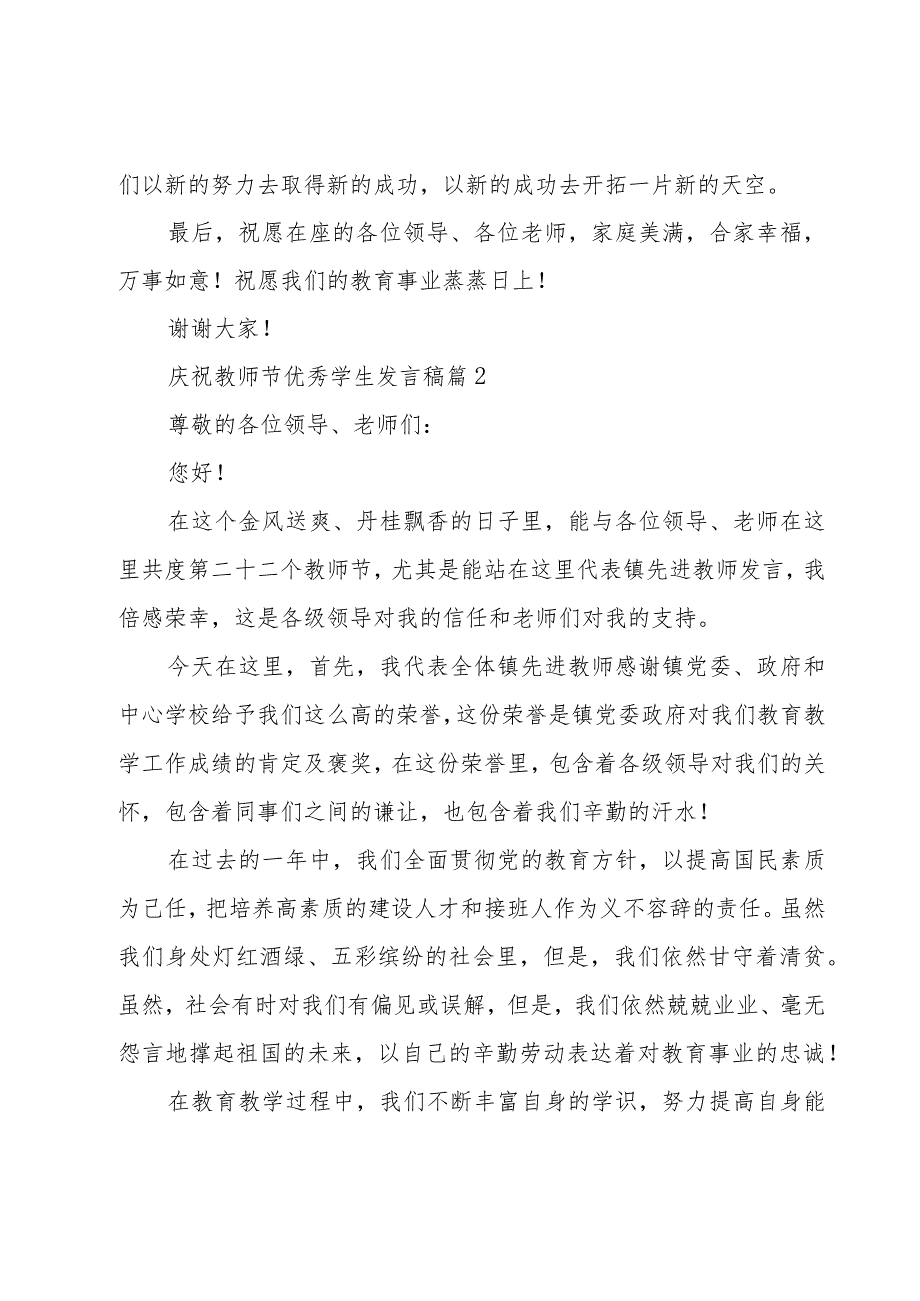 们以新的努力去取得新的成功，以新的成功去开拓一片新的天空。
最后，祝愿在座的各位领导、各位老师，家庭美满，合家幸福，
万事如意！祝愿我们的教育事业蒸蒸日上！
谢谢大家！
庆祝教师节优秀学生发言稿篇2
尊敬的各位领导、老师们：
您好！
在这个金风送爽、丹桂飘香的日子里，能与各位领导、老师在这
里共度第二十二个教师节，尤其是能站在这里代表镇先进教师发言，我
倍感荣幸，这是各级领导对我的信任和老师们对我的支持。
今天在这里，首先，我代表全体镇先进教师感谢镇党委、政府和
中心学校给予我们这么高的荣誉，这份荣誉是镇党委政府对我们教育教
学工作成绩的肯定及褒奖，在这份荣誉里，包含着各级领导对我们的关
怀，包含着同事们之间的谦让，也包含着我们辛勤的汗水！
在过去的一年中，我们全面贯彻党的教育方针，以提高国民素质
为己任，把培养高素质的建设人才和接班人作为义不容辞的责任。虽然
我们身处灯红酒绿、五彩缤纷的社会里，但是，我们依然甘守着清贫。
虽然，社会有时对我们有偏见或误解，但是，我们依然兢兢业业、毫无
怨言地撑起祖国的未来，以自己的辛勤劳动表达着对教育事业的忠诚！
在教育教学过程中，我们不断丰富自身的学识，努力提高自身能